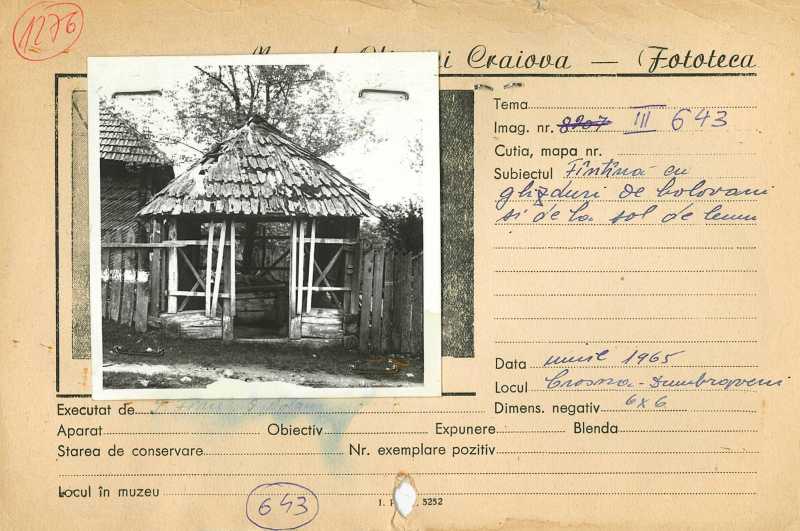 1276
Craiova — Fototeca
Tema
Imag. nr. 8207 III 643
Cutia, mapa nr.
Subiectul Fîntînă cu
ghizduri de bolovani
si de la sol de lemn
Data 1965
Locul Crosna-Dumbraveni
Dimens. negativ 6x6
Executat de
Aparat Obiectiv Expunere Blenda
Starea de conservare Nr. exemplare pozitiv
Locul în muzeu
643
5252